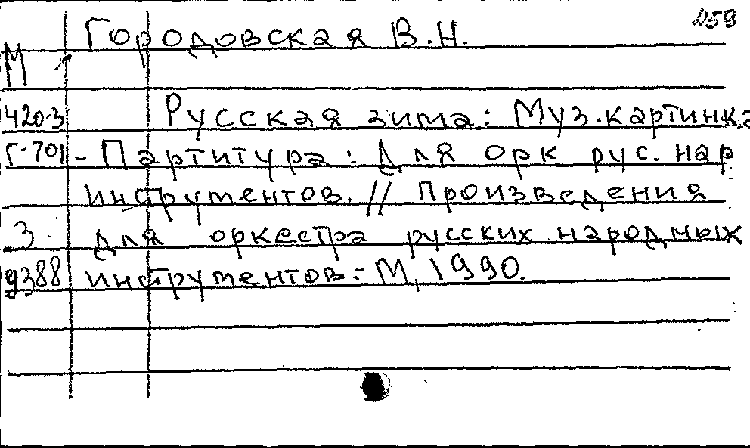 Городовская В.Н.
М
420-3 Русская зима: Муз.картинка
Г-701 - Партитура: Для орк рус. нар
инструментов. // Произведения
3. для оркестра русских народных
9388 инструментов.- М, 1990.